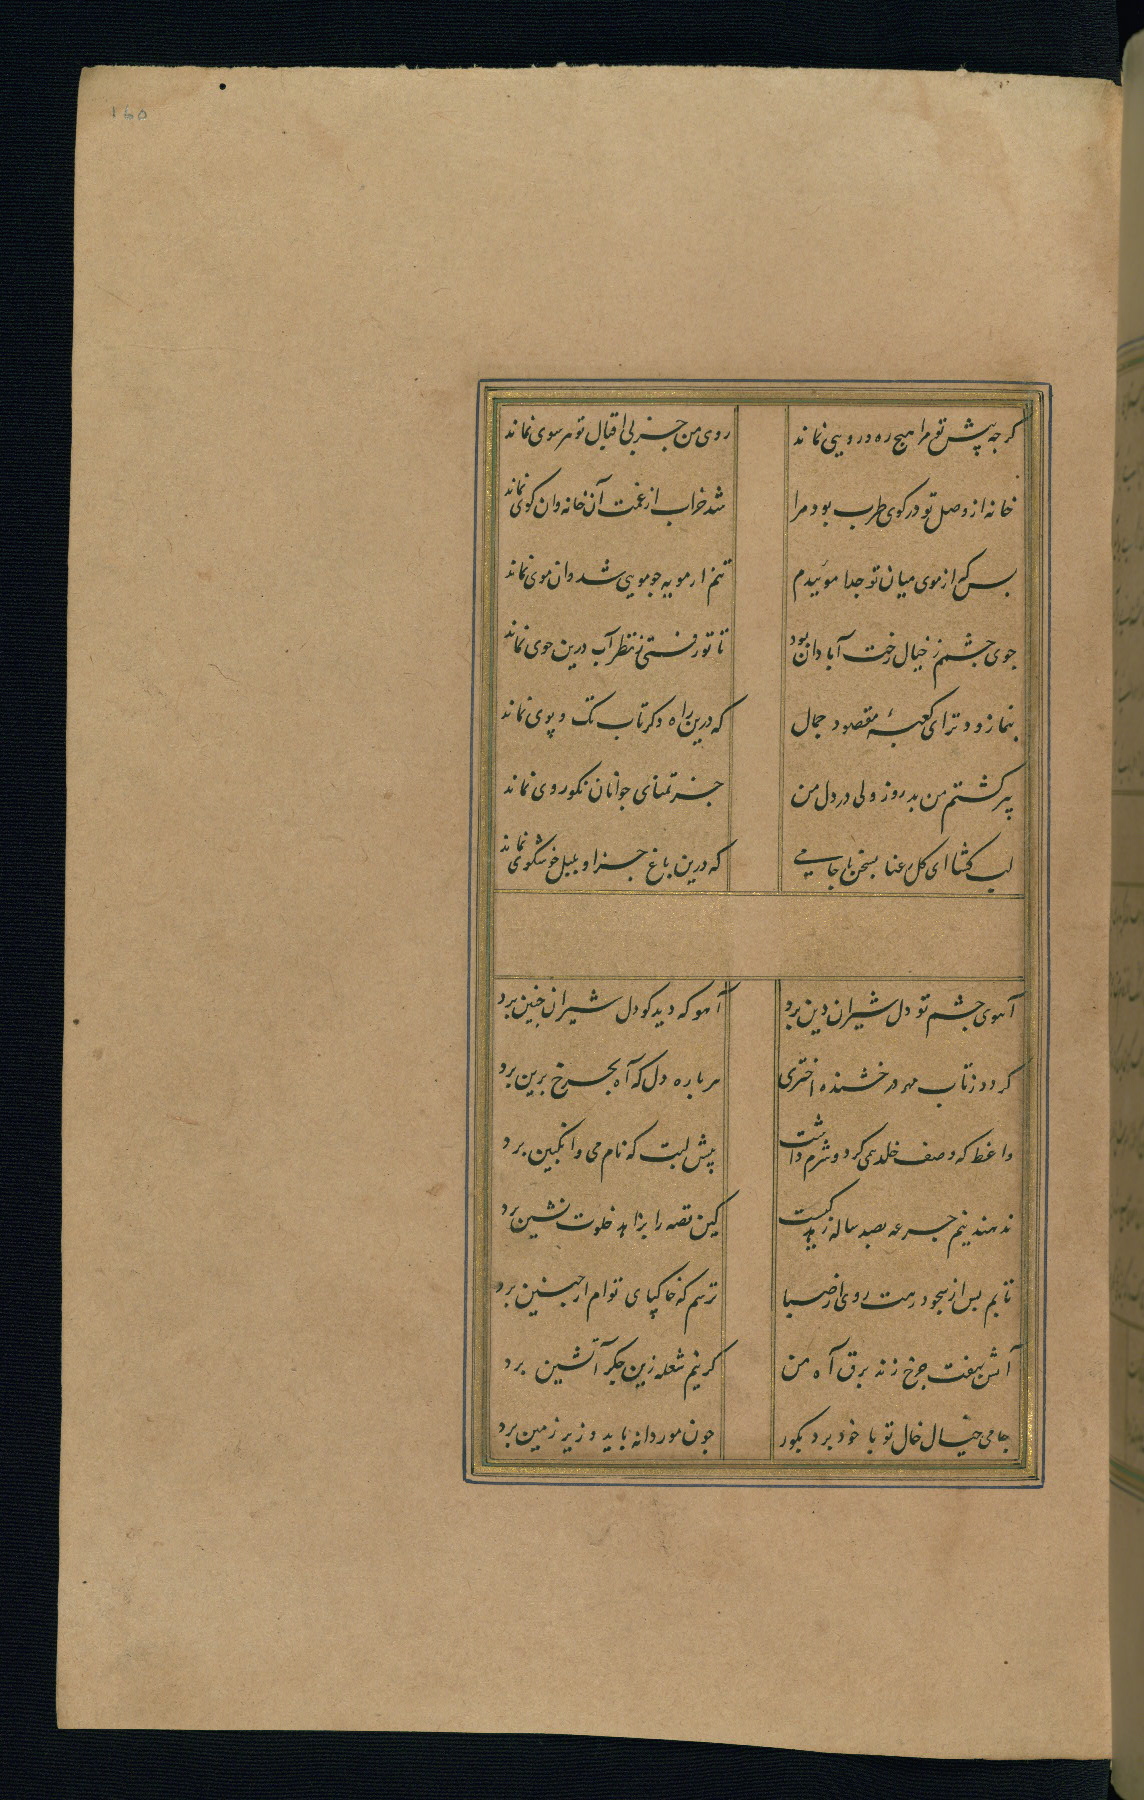 160
کرجه پیش تو مرا هیچ ره و رویی نماند روی من جز بی اقبال تو هر سوی نماند
خانه از وصل تو در کوی طرب بود مرا شد خراب از غمت آن خانه وان کوی نماند
بس که از موی میان تو جدا موییدم تنم از مویه جو مویی شد وان موی نماند
جوی جشمم ز خیال رخت آبادان بود تا تو رفتی ز نظر آب درین جوی نماند
بنما زودتر ای کعبهٔ مقصود جمال که درین راه دکر تاب تک و پوی نماند
پیر کشتم من بدروز ولی در دل من جز تمنای جوانان نکوروی نماند
لب کشا ای کل رعنا بسخن با جامی که درین باغ جز او بلبل خوشکوی نماند
آهوی جشم تو دل شیران دین برد آهو که دید کو دل شیران جنین برد
کردد ز تاب مهر درخشنده اختری هر باره دل که آه بجرخ برین برد
واعظ که وصف خلد همی کرد و شرم داشت پیش لبت که نام می و انکبین برد
ندهند نیم جرعه بصد ساله زهد کیست کین قصه را بزاهد خلوت نشین برد
تابم بس از سجود رهت روی از صبا ترسم که خاکپای توام از جبین برد
آتش بهفت جرخ زند برق آه من کر نیم شعله زین جکر آتشین برد
جامی خیال خال تو با خود برد بکور جون مور دانه یابد و زیر زمین برد